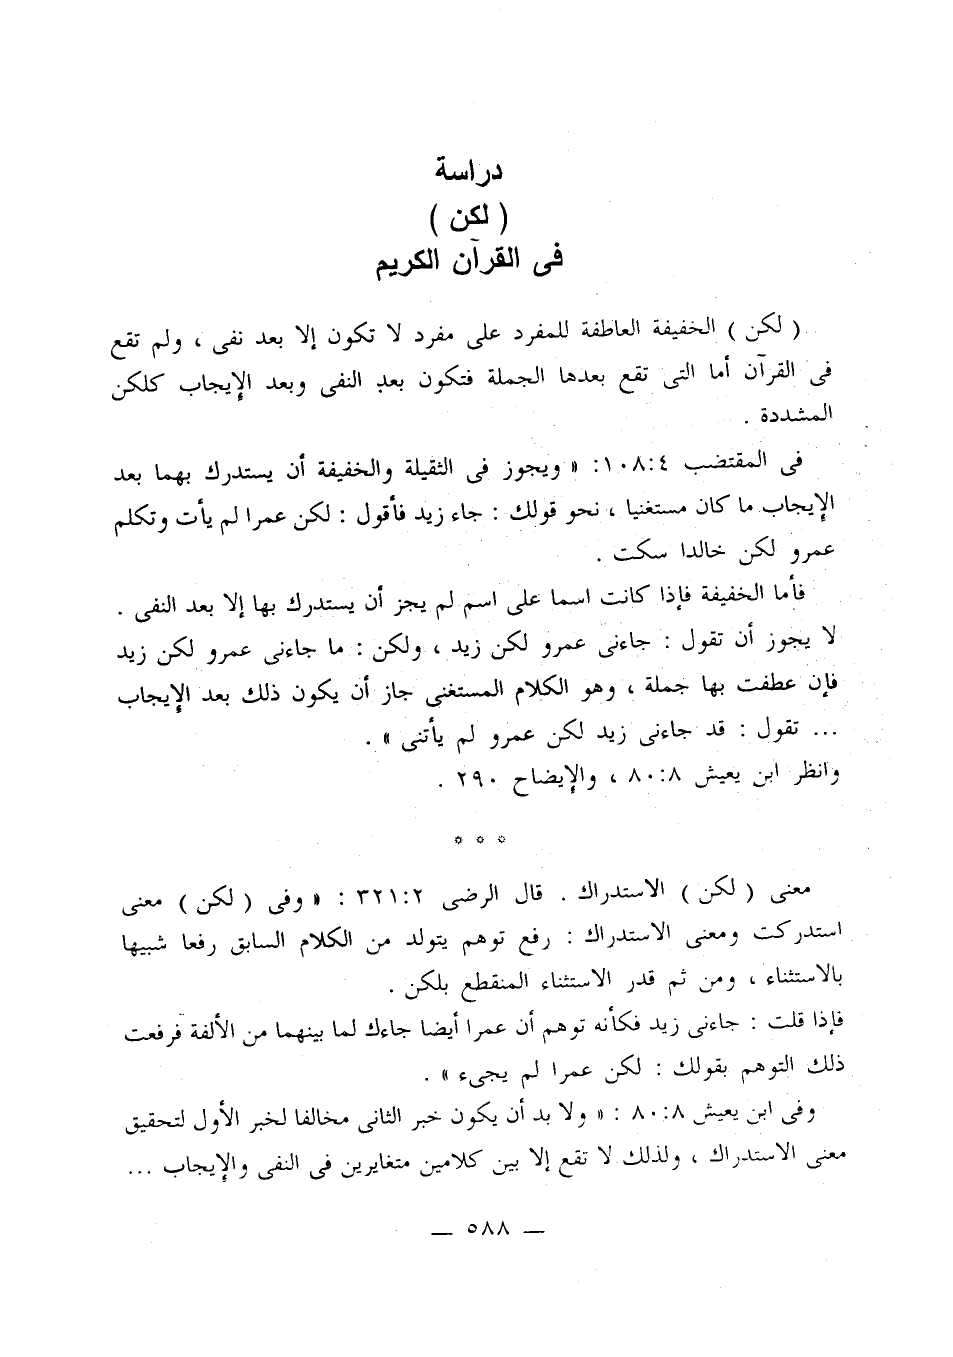 دراسة
( لكن )
فى القرآن الكريم
( لكن ) الخفيفة العاطفة للمفرد على مفرد لا تكون إلا بعد نفى ، ولم تقع
فى القرآن أما التى تقع بعدها الجملة فتكون بعد النفى وبعد الإيجاب كلكن
المشددة .
فى المقتضب ٤:١٠٨: « ويجوز فى الثقيلة والخفيفة أن يستدرك بهما بعد
الإيجاب ما كان مستغنيا ، نحو قولك : جاء زيد فأقول : لكن عمرا لم يأت وتكلم
عمرو لكن خالدا سكت .
فأما الخفيفة فإذا كانت اسما على اسم لم يجز أن يستدرك بها إلا بعد النفى .
لا يجوز أن تقول : جاءنى عمرو لكن زيد ، ولكن : ما جاءنى عمرو لكن زيد
فإن عطفت بها جملة ، وهو الكلام المستغنى جاز أن يكون ذلك بعد الإيجاب
... تقول : قد جاءنى زيد لكن عمرو لم يأتنى » .
وانظر ابن يعيش ٨:٨٠ ، والإيضاح ٢٩٠ .
* * *
معنى ( لكن ) الاستدراك . قال الرضى ٢:٣٢١ : « وفى ( لكن ) معنى
استدركت ومعنى الاستدراك : رفع توهم يتولد من الكلام السابق رفعا شبيها
بالاستثناء ، ومن ثم قدر الاستثناء المنقطع بلكن .
فإذا قلت : جاءنى زيد فكأنه توهم أن عمرا أيضا جاءك لما بينهما من الألفة فرفعت
ذلك التوهم بقولك : لكن عمرا لم يجىء » .
وفى ابن يعيش ٨:٨٠ : « ولا بد أن يكون خبر الثانى مخالفا لخبر الأول لتحقيق
معنى الاستدراك ، ولذلك لا تقع إلا بين كلامين متغايرين فى النفى والإيجاب ...
— ٥٨٨ —